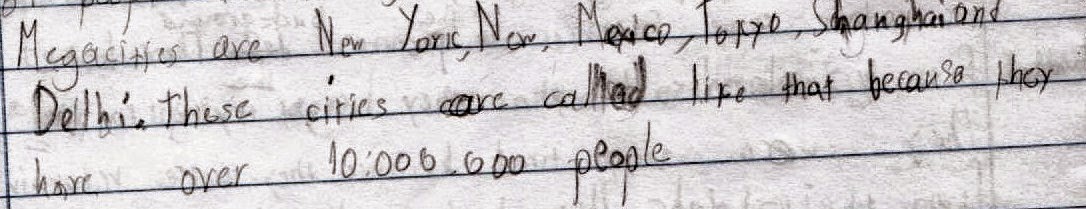 Megacities are New York, New, Mexico, Tokyo, Shanghai and
Dellhi. These cities are called like that because they
have over 10.000.000 people